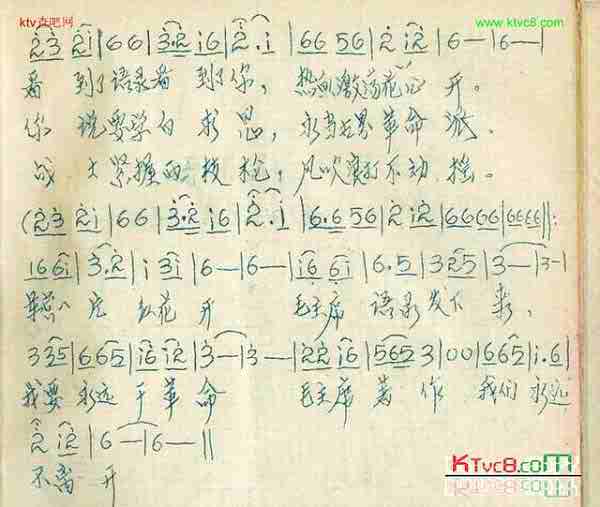 ktv点吧网
www.ktvc8.com
2̇3̇ 2̇i|6 6|3̇·2̇ i6|2̇·i|66 56|2̇ i2̇|6—|6—|
看 到了语录看 到了你，热血激荡花心 开。
你 说要学白 求 恩，永当世界革命 派。
战 士紧握 枪，风吹 不动 摇。
(2̇3̇ 2̇i|6 6|3̇·2̇ i6|2̇·i|6·6 56|2̇ i2̇|6666|6666‖:
i6 6i|3̇·2̇|i 3̇i|6—|6—|i6 6i|6·5|3 25|3—|3-|
红花 开 毛主席 语录发下 来，
3 35|6 65|i6 i2̇|3̇—|3̇—|2̇2̇ i6|565 3|0 0|6 65|i·6|
我要 永远 干革 命 毛主席 著 作 我们 永远
2̇ i2̇|6—|6—‖
不离 开
KTvc8.com